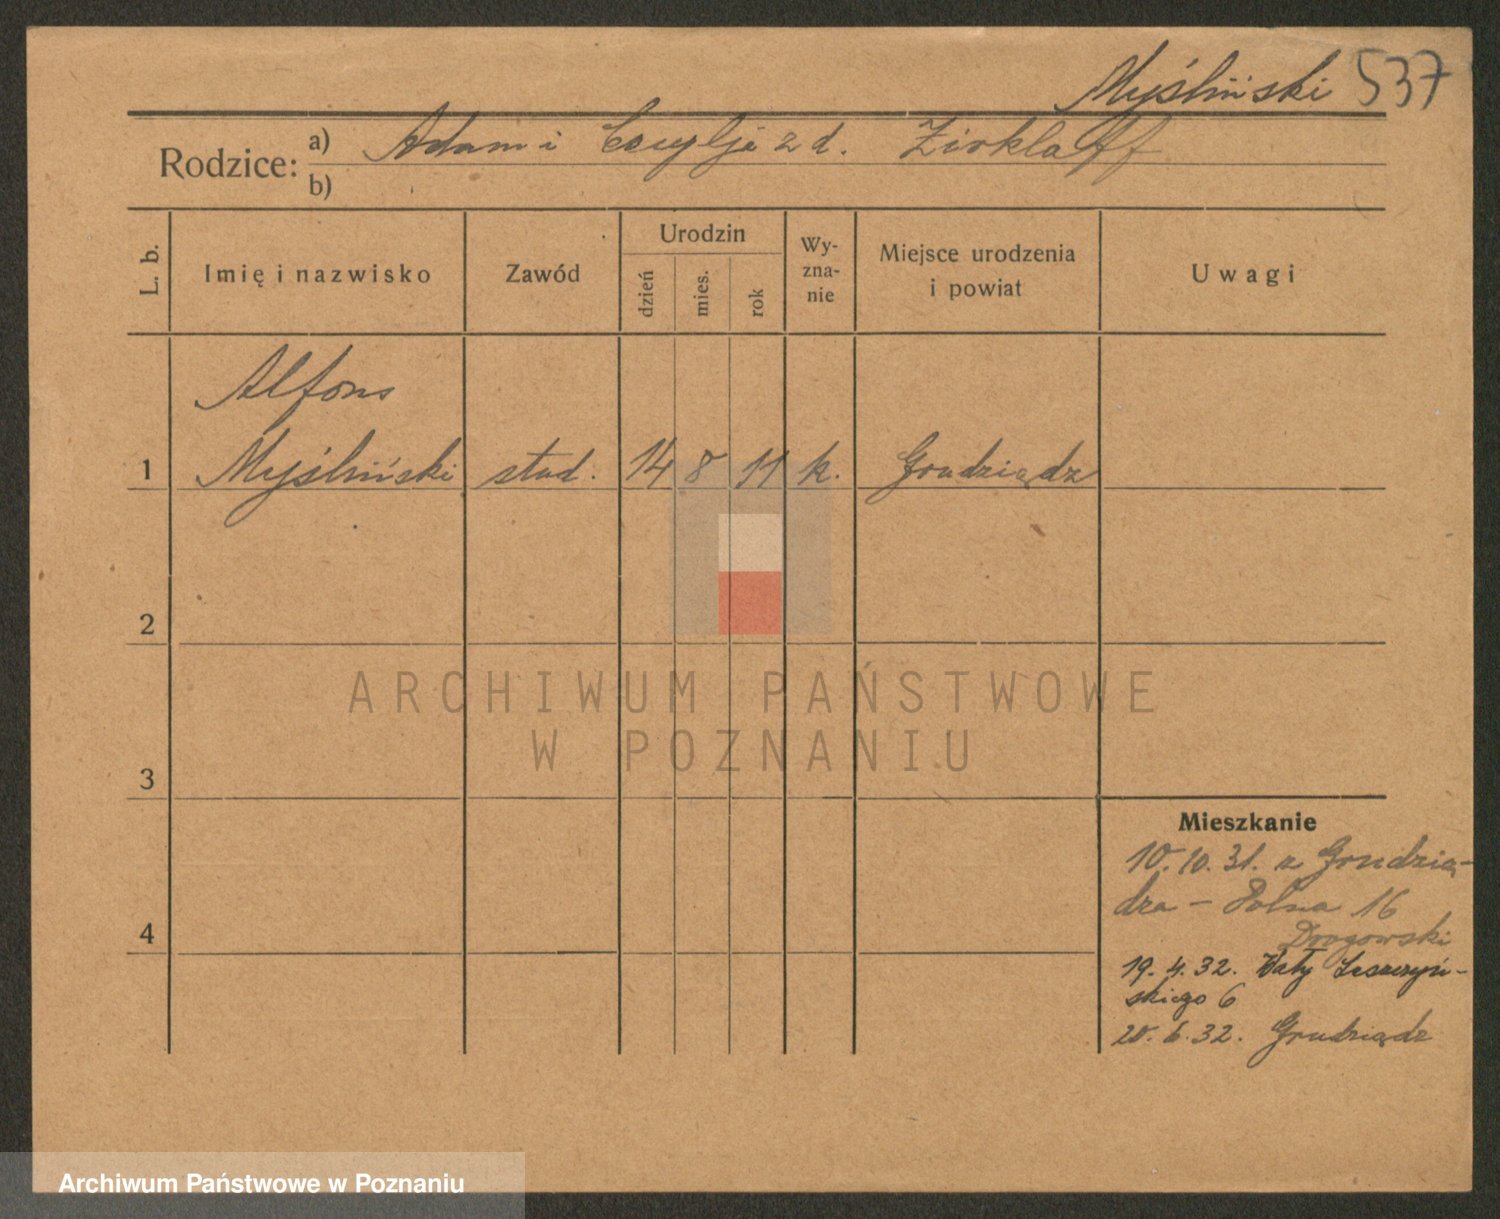 Myśliński 537
Rodzice: a) Adam i Cecylja z d. Zirklaff
b)
L. b.
Imię i nazwisko
Zawód
Urodzin
dzień
mies.
rok
Wy-
zna-
nie
Miejsce urodzenia
i powiat
Uwagi
Alfons
1 Myśliński stud. 14 8 11 k. Grudziądz
2
ARCHIWUM PAŃSTWOWE
W POZNANIU
3
Mieszkanie
10.10.31. z Grudzią-
dza - Polna 16
Drogowski
4
19.4.32. Wały Leszczyń-
skiego 6
20.6.32. Grudziądz
Archiwum Państwowe w Poznaniu